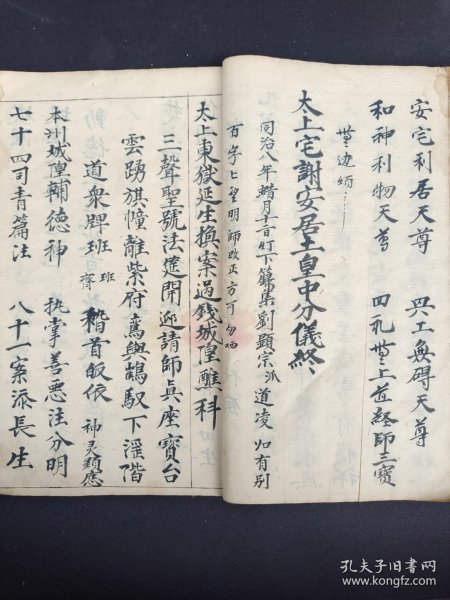 安宅利居天尊 興工無碍天尊
和神利物天尊 四礼無上道経師三寶
太上宅謝安居土皇中分儀終
同治八年蜡月十 灯下 集劉顕宗 道凌 有别
百字上聖明師改正方可
太上東嶽延生換案過錢城隍醮科
三聲聖號法筵開 迎請師真座寶台
雲踴旗幢離紫府 鸞輿鶴馭下瑶階
道衆牌班班齊 稽首皈依 神灵顕應
本州城隍輔德神 执掌善悪注分明
七十四司青篇注 八十一案添長生
孔夫子旧书网
www.kongfz.com